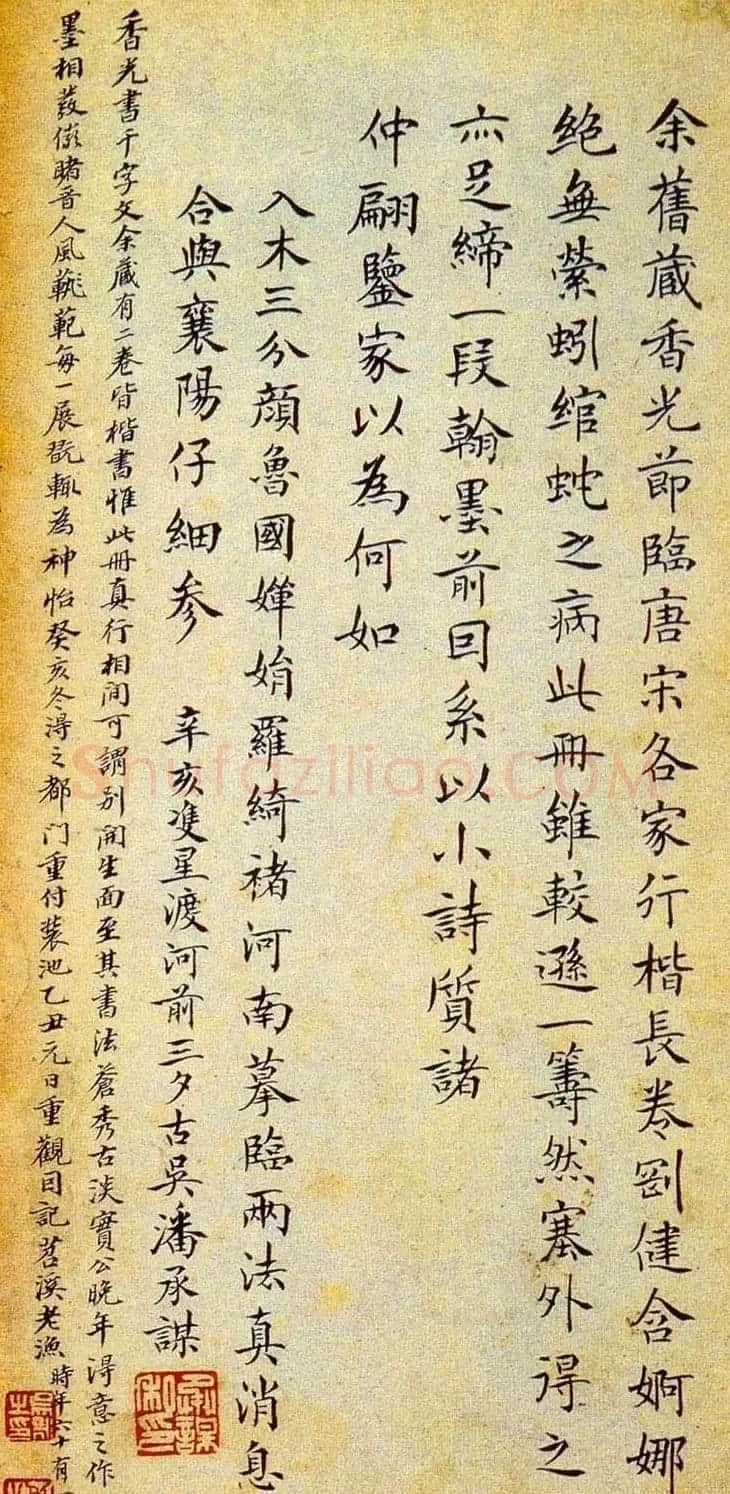 余舊藏香光節臨唐宋各家行楷長卷剛健含婀娜
絕無縈蚓綰蛇之病此冊雖較遜一籌然塞外得之
亦足締一段翰墨前因系以小詩質諸
仲翮鑒家以為何如
入木三分顏魯國嬋娟羅綺褚河南摹臨兩法真消息
合與襄陽仔細參
辛亥雙星渡河前三夕古吳潘承謀
香光書千字文余藏有二卷皆楷書惟此冊真行相間可謂別開生面至其書法蒼秀古淡實公晚年得意之作
墨相發儼睹晉人風範每一展翫輒為神怡癸亥冬得之都門重付裝池乙丑元日重觀因記苕溪老漁
時年六十有
承謀私印
Shufaziliao.COM